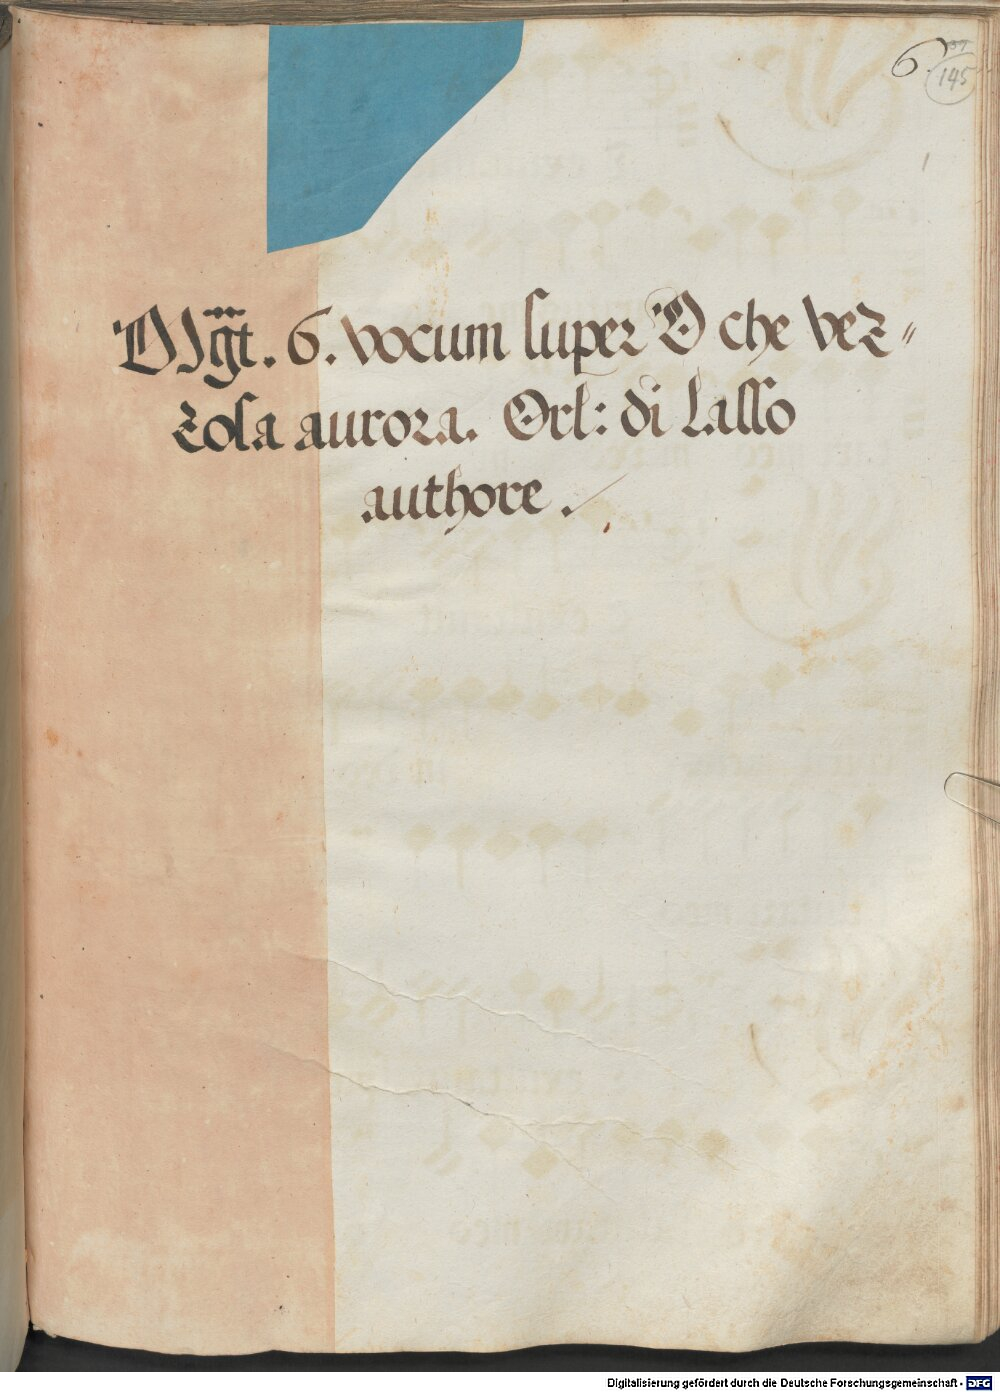 6.
145
Mgt. 6. vocum super O che vez=
zosa aurora. Orl: di Lasso
authore.
Digitalisierung gefördert durch die Deutsche Forschungsgemeinschaft - DFG